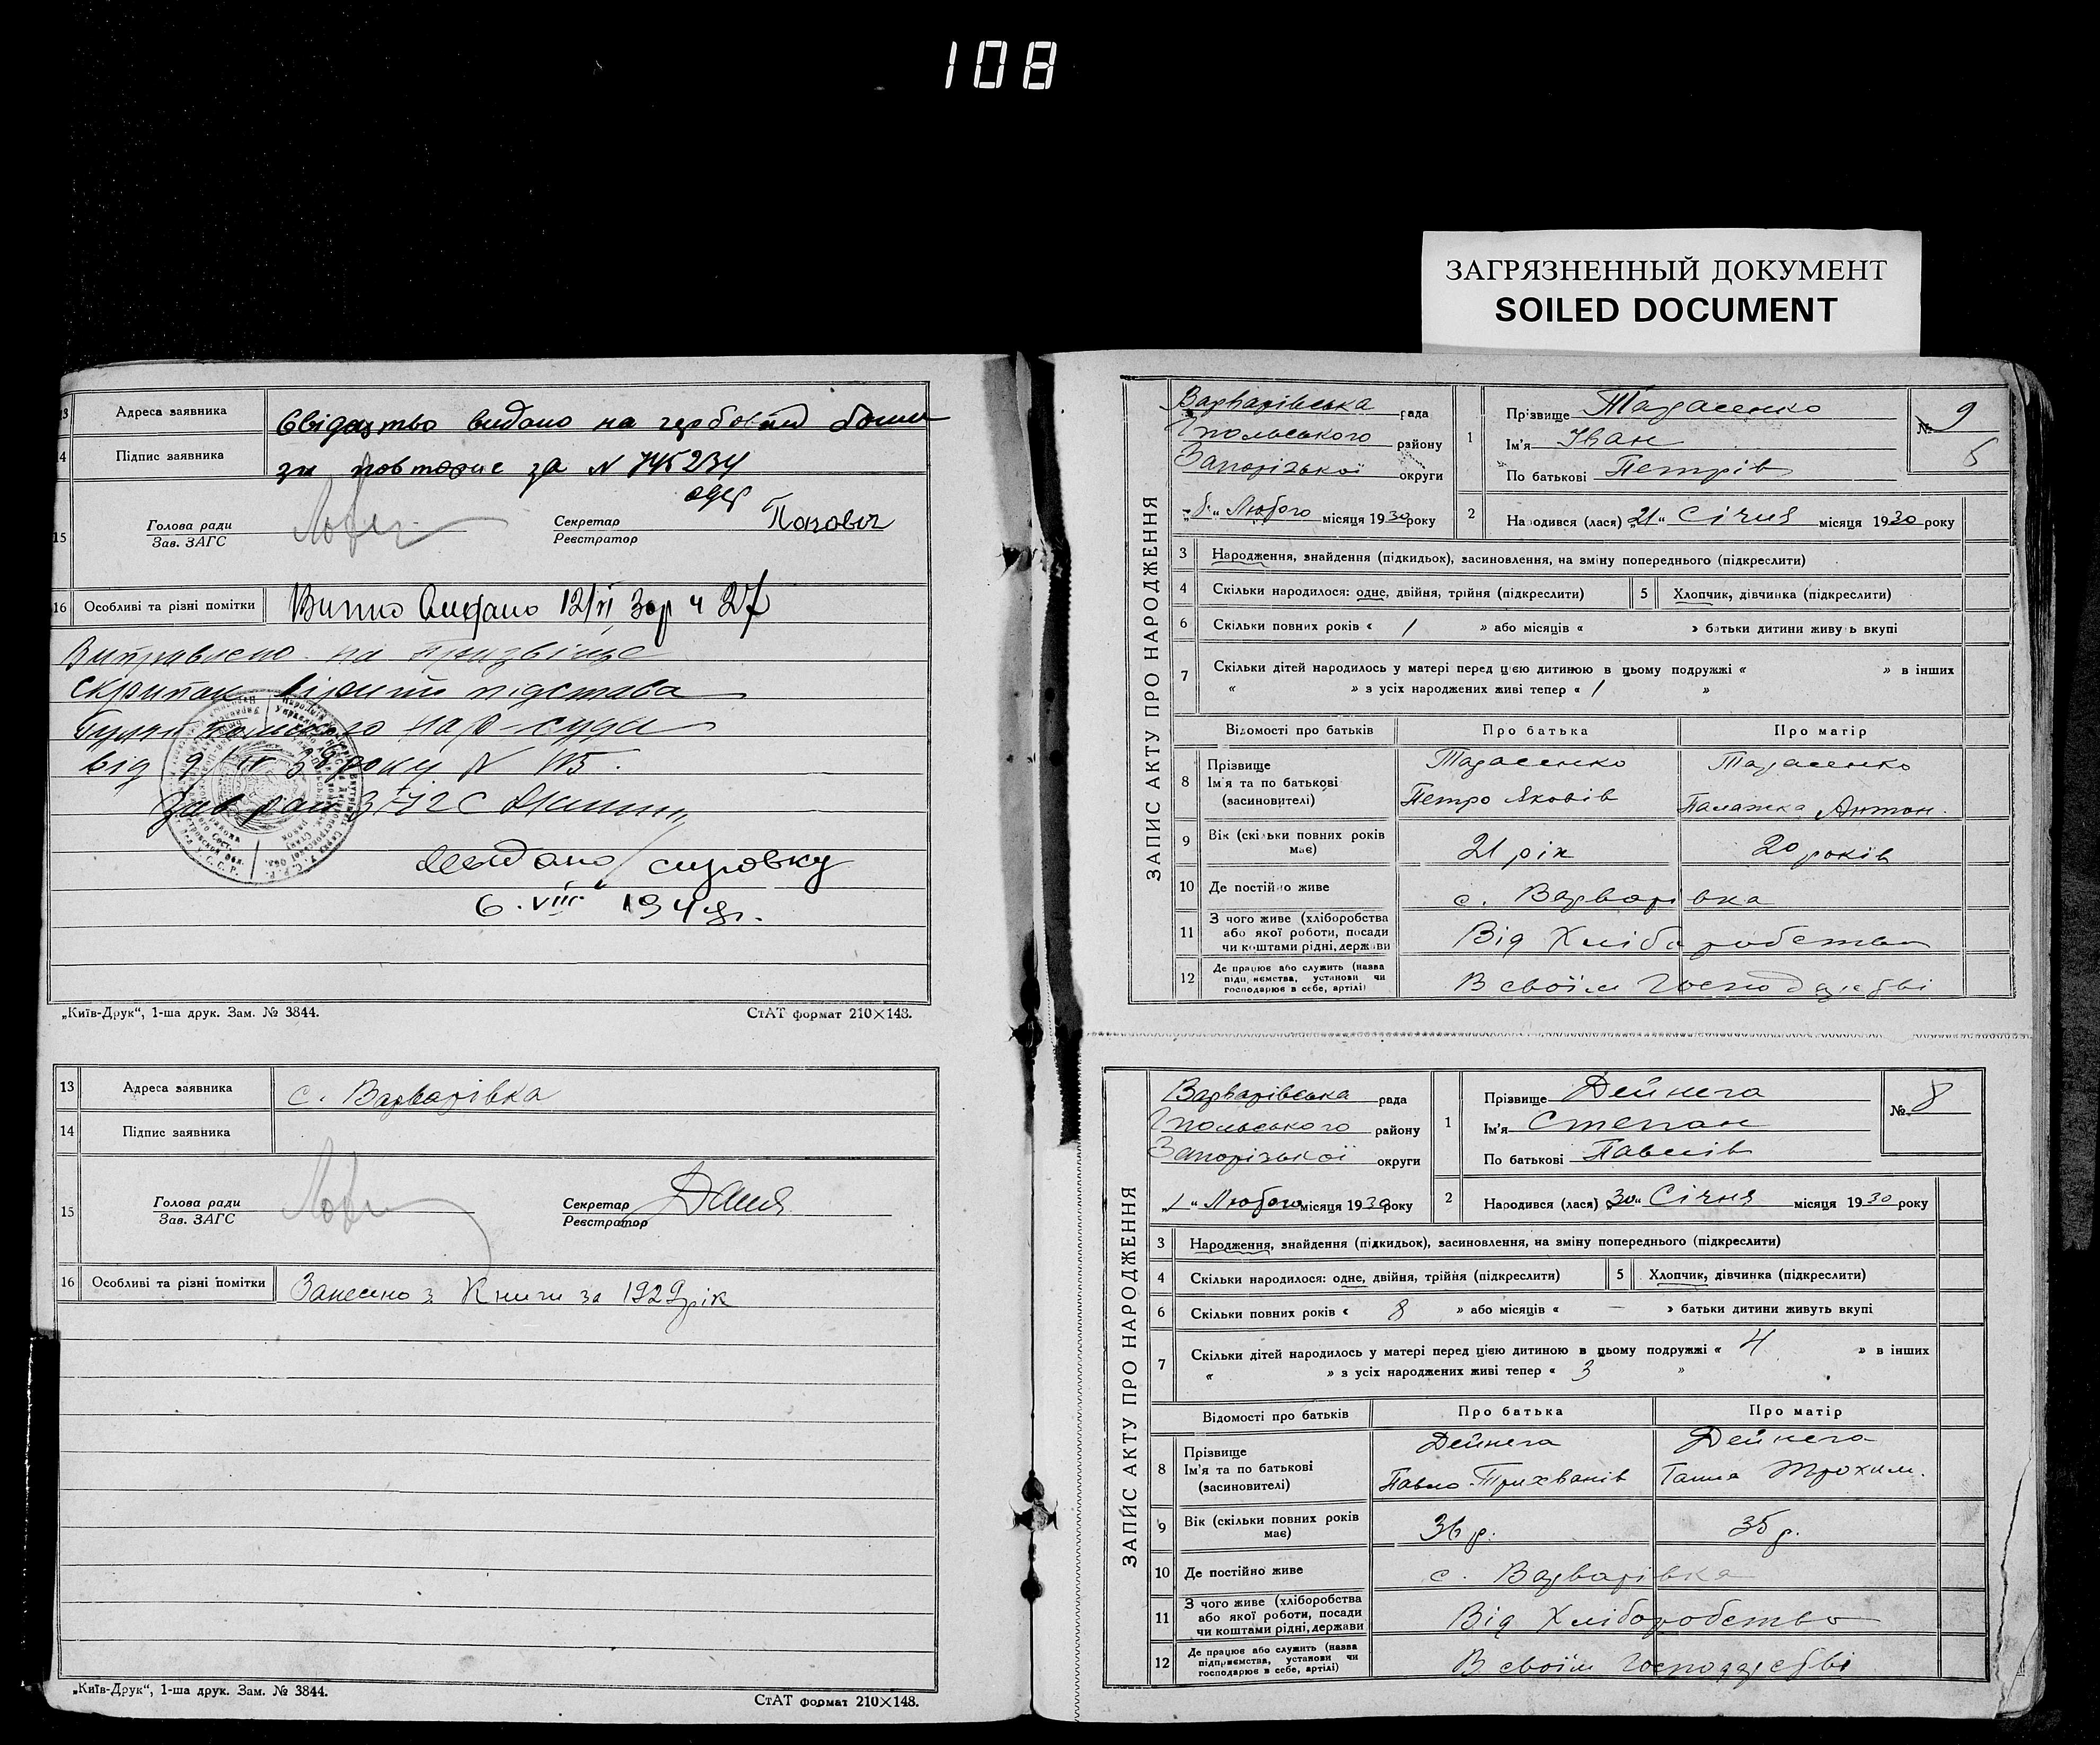 108
ЗАГРЯЗНЕННЫЙ ДОКУМЕНТ
SOILED DOCUMENT
13 Адреса заявника
Свідоцтво видано на гербовій
14 Підпис заявника
за N 745234
15 Голова ради
Зав. ЗАГС
Секретар
Реєстратор
16 Особливі та різні помітки
Видано 12/VI 30р ч 27
Виправлено на Прізвище
підстава
нар-суду
від 9 року N 115.
6. VIII 194
„Київ-Друк“, 1-ша друк. Зам. № 3844.
СтАТ формат 210×148.
13 Адреса заявника с. Варварівка
14 Підпис заявника
15 Голова ради
Зав. ЗАГС
Секретар
Реєстратор
16 Особливі та різні помітки Занесено з Книги за 1929 рік
„Київ-Друк“, 1-ша друк. Зам. № 3844.
СтАТ формат 210×148.
ЗАПИС АКТУ ПРО НАРОДЖЕННЯ
Варварівська рада
Гпольського району
Запорізької округи
„6“ Лютого місяця 1930 року
1 Прізвище Тарасенко
Ім'я Іван
По батькові Петрів
№ 9
2 Народився (лася) „21“ Січня місяця 1930 року
3 Народження, знайдення (підкидьок), засиновлення, на зміну попереднього (підкреслити)
4 Скільки народилося: одне, двійня, трійня (підкреслити) 5 Хлопчик, дівчинка (підкреслити)
6 Скільки повних років « 1 » або місяців « » батьки дитини живуть вкупі
7 Скільки дітей народилось у матері перед цією дитиною в цьому подружжі « » в інших
« » з усіх народжених живі тепер « 1 »
Відомості про батьків Про батька Про матір
8 Прізвище Тарасенко Тарасенко
Ім'я та по батькові
(засиновителі) Петро Яковів Палажка Антон.
9 Вік (скільки повних років
має) 21 рік 20 років
10 Де постійно живе с. Варварівка
11 З чого живе (хліборобства
або якої роботи, посади
чи коштами рідні, держави Від Хліборобства
12 Де працює або служить (назва
підприємства, установи чи
господарює в себе, артілі) В своїм Господарстві
ЗАПИС АКТУ ПРО НАРОДЖЕННЯ
Варварівська рада
Гпольського району
Запорізької округи
„1“ Лютого місяця 1930 року
1 Прізвище Дейнега
Ім'я Степан
По батькові Павлів
№ 8
2 Народився (лася) „30“ Січня місяця 1930 року
3 Народження, знайдення (підкидьок), засиновлення, на зміну попереднього (підкреслити)
4 Скільки народилося: одне, двійня, трійня (підкреслити) 5 Хлопчик, дівчинка (підкреслити)
6 Скільки повних років « 8 » або місяців « — » батьки дитини живуть вкупі
7 Скільки дітей народилось у матері перед цією дитиною в цьому подружжі « 4 » в інших
« » з усіх народжених живі тепер « 3 »
Відомості про батьків Про батька Про матір
8 Прізвище Дейнега Дейнега
Ім'я та по батькові
(засиновителі) Павло Трихванів Ганна Трохим.
9 Вік (скільки повних років
має) 36 р. 35 р.
10 Де постійно живе с. Варварівка
11 З чого живе (хліборобства
або якої роботи, посади
чи коштами рідні, держави Від Хліборобство
12 Де працює або служить (назва
підприємства, установи чи
господарює в себе, артілі) В своїм Господарстві